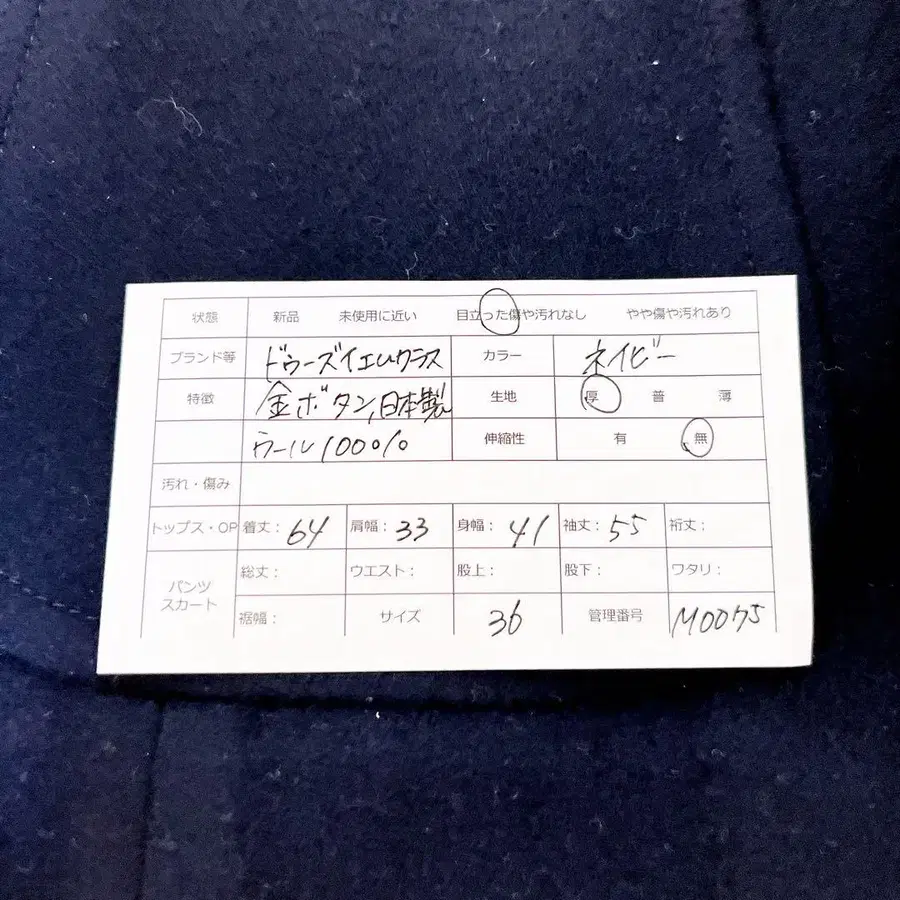 状態 新品 未使用に近い 目立った傷や汚れなし やや傷や汚れあり
ブランド等 ドゥーズィエムクラス カラー ネイビー
特徴 金ボタン,日本製 生地 厚 普 薄
ウール100% 伸縮性 有 無
汚れ・傷み
トップス・OP 着丈: 64 肩幅: 33 身幅: 41 袖丈: 55 裄丈:
パンツ スカート 総丈: ウエスト: 股上: 股下: ワタリ:
裾幅: サイズ 36 管理番号 M0075